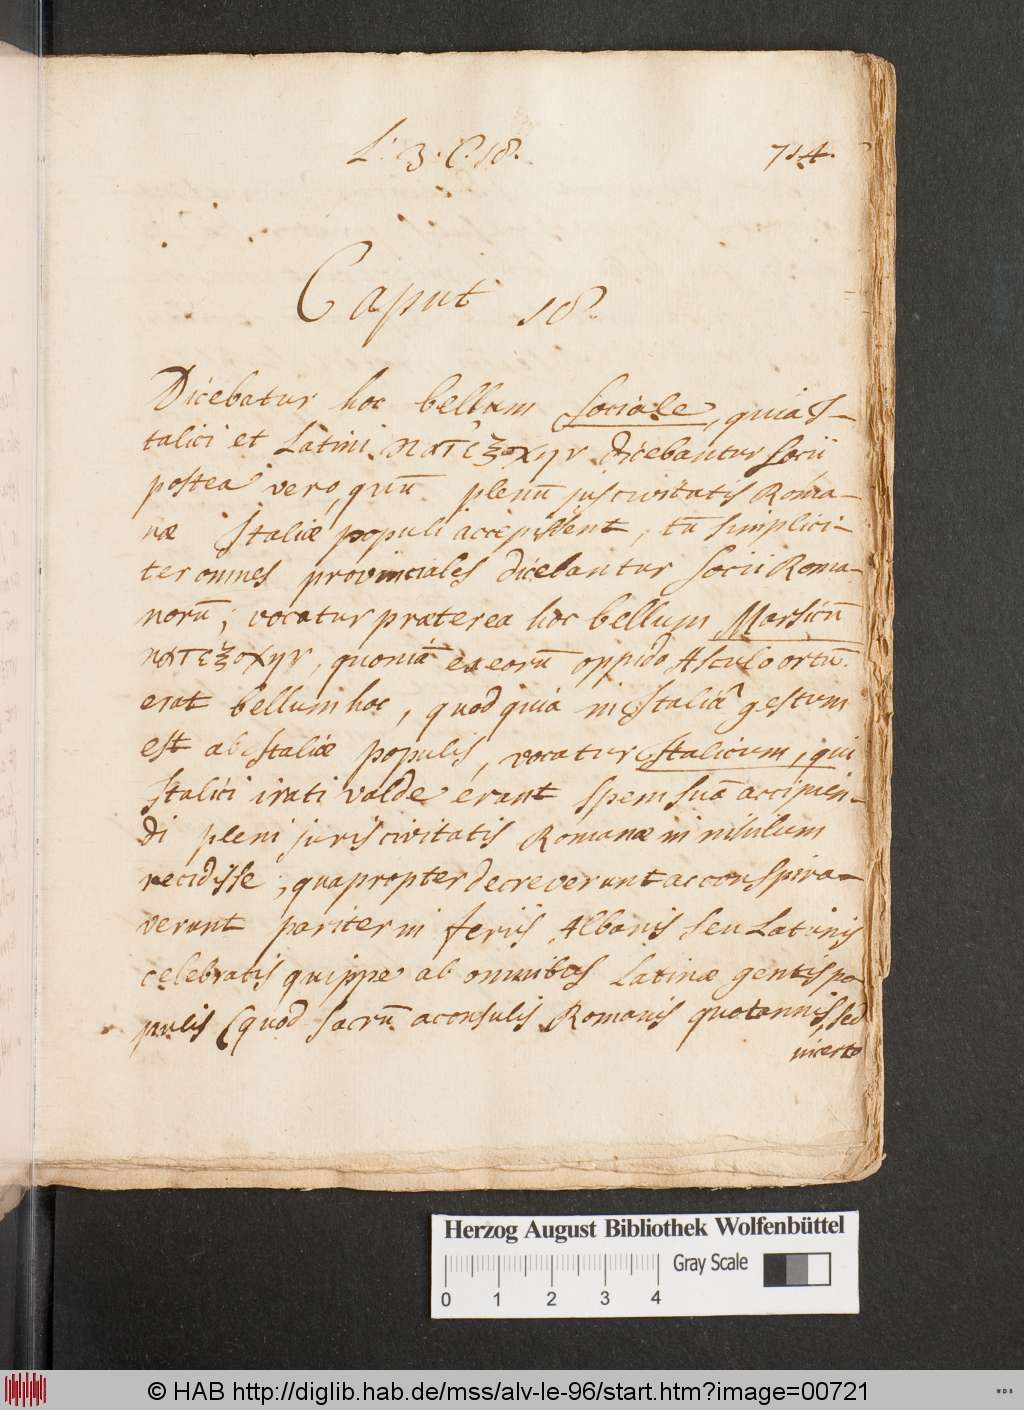 L. 3. C. 18.
714.
Caput 18.
Dicebatur hoc bellum Sociale, quia I-
talici et Latini κατ' ἐξοχην dicebantur socii
postea vero, quū plenū jus civitatis Roma-
næ Italiæ populi accepissent, tū simplici-
ter omnes provinciales dicebantur socii Roma-
norū; vocatur præterea hoc bellum Marsicū
κατ ἐξοχην, quoniā ex eorū oppido Asculo ortū
erat bellum hoc, quod quia in Italiâ gestum
est ab Italiæ populis, vocatur Italicum, qui
Italici irati valde erant spem suā accipien-
di pleni juris civitatis Romanæ in nihilum
recidisse, quapropter decreverunt ac conspira-
verunt pariter in feriis Albanis seu Latinis
celebratis quippe ab omnibus Latinæ gentis po-
pulis (quod sacrū a consulis Romanis quotannis, sed
incerto
Herzog August Bibliothek Wolfenbüttel
Gray Scale
0 1 2 3 4
© HAB http://diglib.hab.de/mss/alv-le-96/start.htm?image=00721